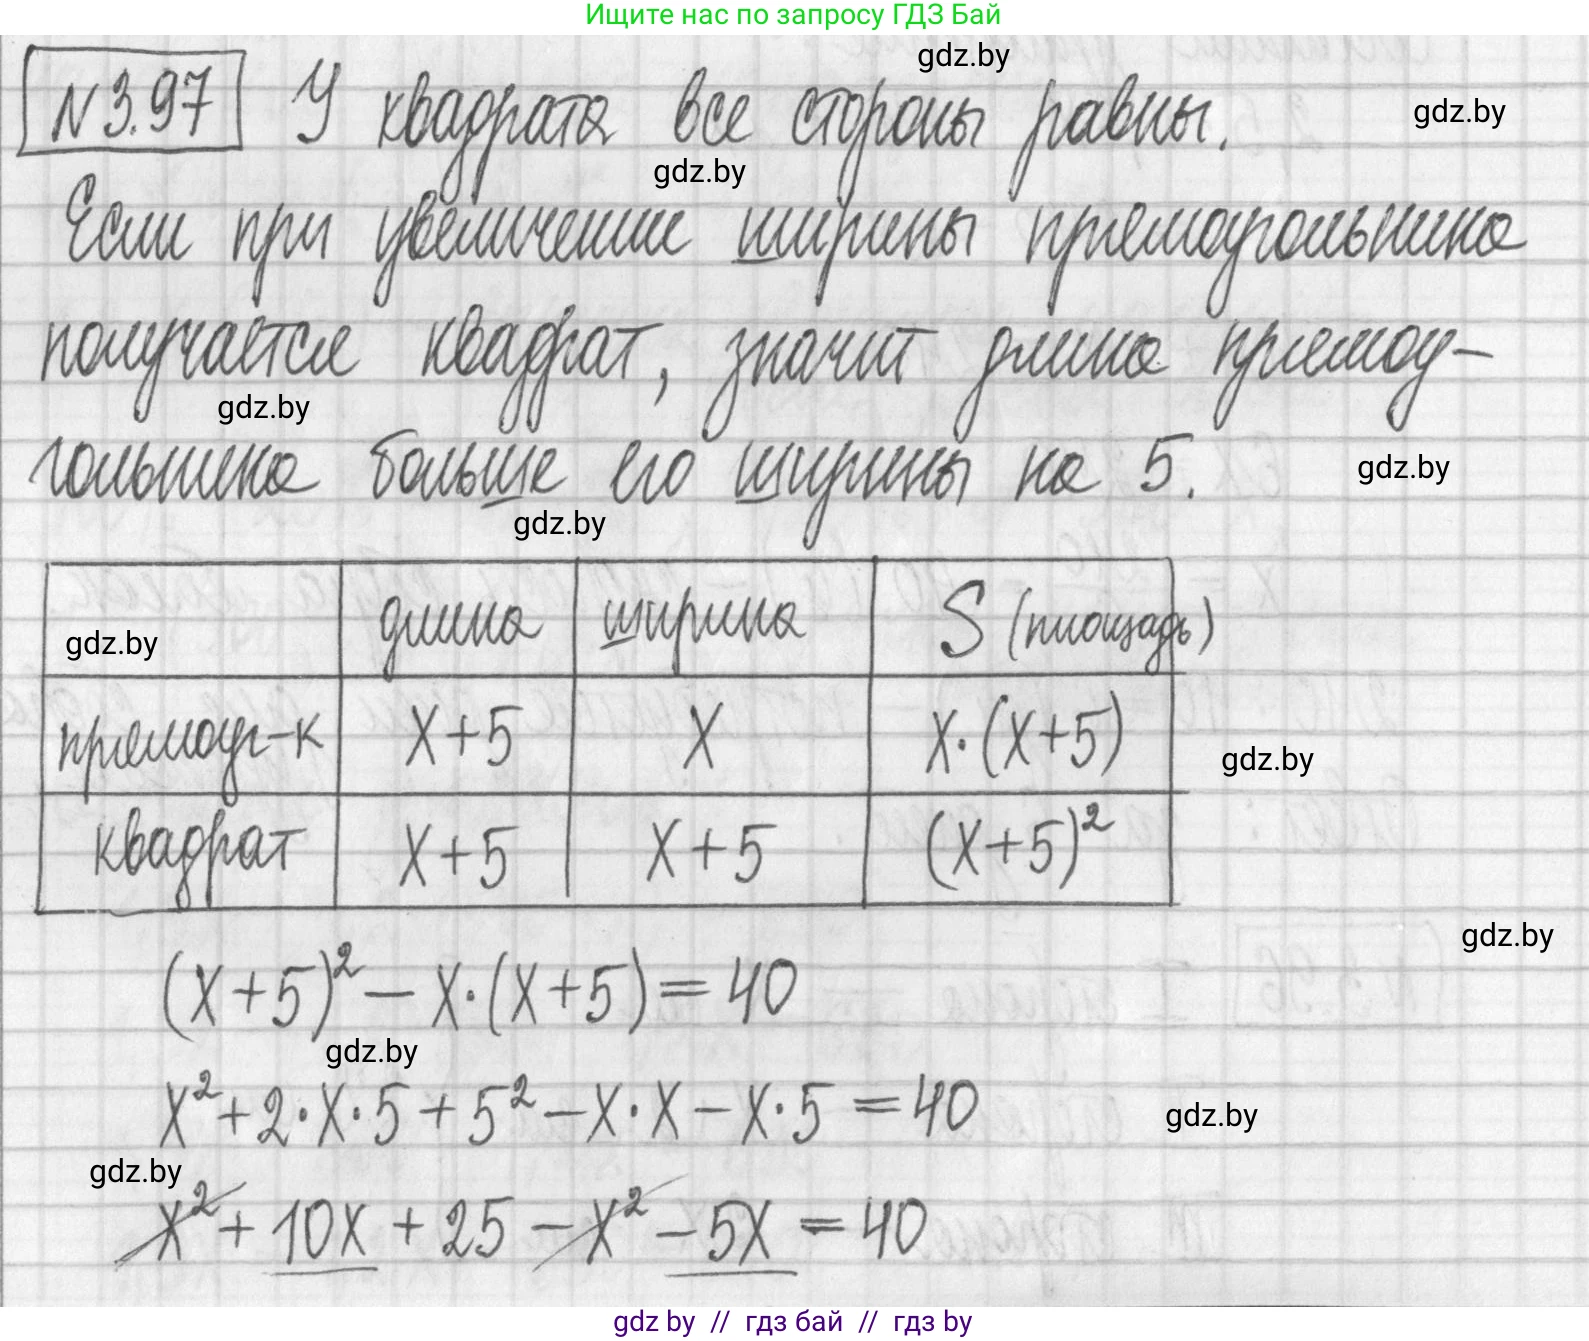 Ищите нас по запросу ГДЗ Бай
gdz.by
N 3.97 У квадрата все стороны равны.
gdz.by
gdz.by
Если при увеличении ширины прямоугольника
получается квадрат, значит длина прямоу-
gdz.by
гольника больше его ширины на 5.
gdz.by
gdz.by
длина ширина S (площадь)
gdz.by
прямоуг-к x+5 x x·(x+5)
gdz.by
квадрат x+5 x+5 (x+5)²
gdz.by
(x+5)² − x·(x+5) = 40
gdz.by
x² + 2·x·5 + 5² − x·x − x·5 = 40
gdz.by
gdz.by
x² + 10x + 25 − x² − 5x = 40
gdz.by // гдз бай // гдз by